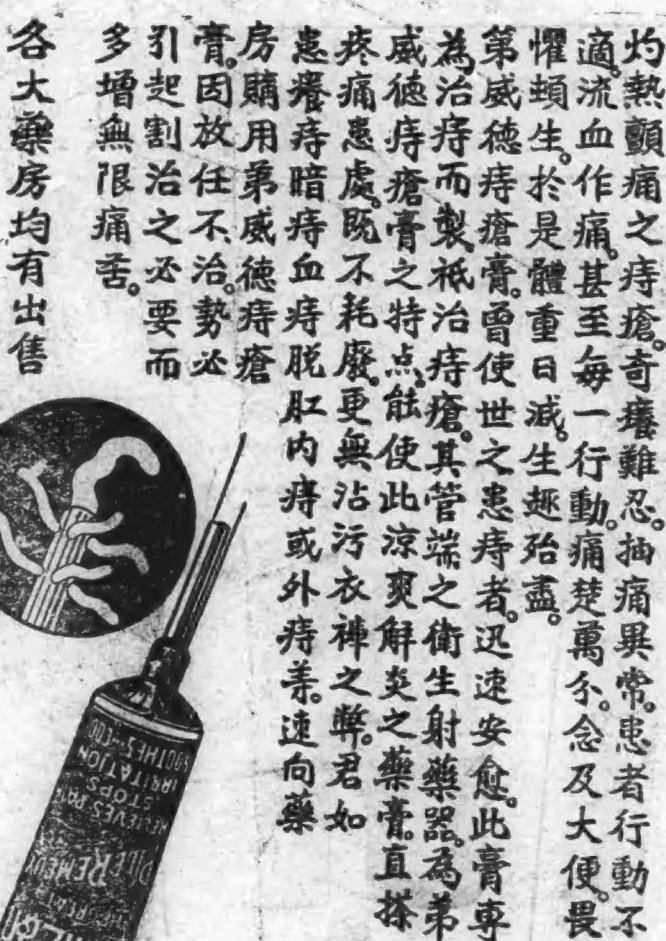 灼熱顫痛之痔瘡。奇癢難忍。抽痛異常。患者行動不
適。流血作痛。甚至每一行動。痛楚萬分。念及大便。畏
懼頓生。於是體重日減。生趣殆盡。
第威德痔瘡膏。曾使世之患痔者。迅速安愈。此膏專
為治痔而製。祇治痔瘡。其管端之衛生射藥器。為第
威德痔瘡膏之特点。能使此涼爽解炎之藥膏。直搽
疼痛患處。既不耗廢。更無沾污衣褲之弊。君如
患癢痔暗痔血痔脱肛内痔或外痔羔。速向藥
房購用第威德痔瘡
膏。因放任不治。勢必
引起割治之必要而
多增無限痛苦。
各大藥房均有出售
SOOTHES-COO
IRRITATION
STOPS
RELIEVES PAIN
PILE REMEDY